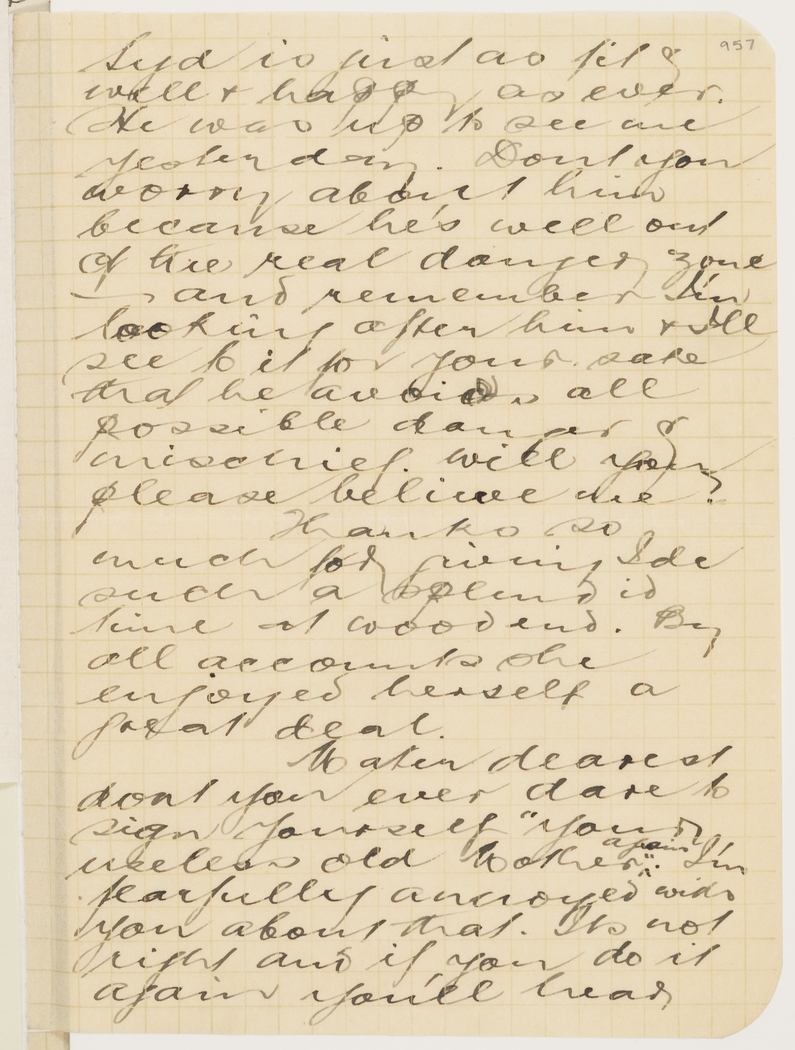 957
Syd is just as fit &
well & happy as ever.
He was up to see me
yesterday. Dont you
worry about him
because he's well out
of the real danger zone
— and remember I'm
looking after him & I'll
see to it for your sake
that he avoids all
possible danger &
mischief. will you
please believe me?
Thanks so
much for giving Ida
such a splendid
time at woodend. By
all accounts she
enjoyed herself a
great deal.
Mater dearest
dont you ever dare to
sign yourself "your
useless old Mother" again. I'm
fearfully annoyed with
you about that. Its not
right and if you do it
again you'll hear